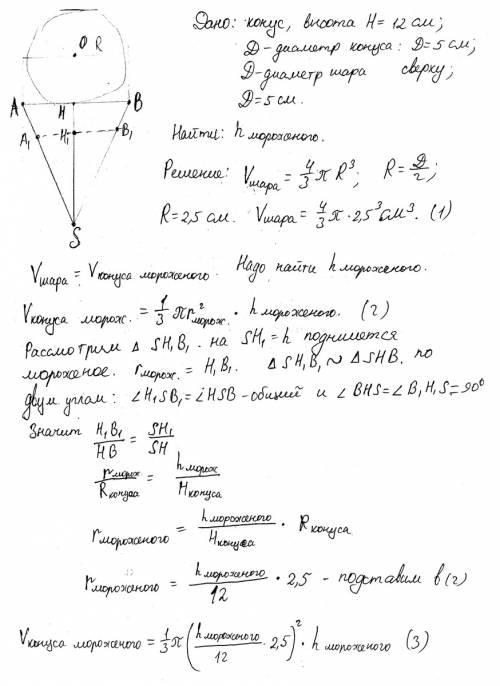 O R
A H B
A₁ H₁ B₁
S
Дано: конус, высота H = 12 см;
D - диаметр конуса: D = 5 см;
D - диаметр шара сверху;
D = 5 см.
Найти: h мороженого.
Решение: Vшара = 4/3 π R³; R = D/2;
R = 2,5 см. Vшара = 4/3 π · 2,5³ см³. (1)
Vшара = Vконуса мороженого. Надо найти h мороженого.
Vконуса морож. = 1/3 π r²морож. · h мороженого. (2)
Рассмотрим Δ SH₁B₁. на SH₁ = h поднимется
мороженое. rморож. = H₁B₁. Δ SH₁B₁ ~ Δ SHB. по
двум углам: ∠H₁SB₁ = ∠HSB - общий и ∠BHS = ∠B₁H₁S = 90°
Значит H₁B₁/HB = SH₁/SH
rморож/Rконуса = hморож/Hконуса
rмороженого = hмороженого/Hконуса · Rконуса
rмороженого = hмороженого/12 · 2,5 - подставим в (2)
Vконуса мороженого = 1/3 π (hмороженого/12 · 2,5)² · h мороженого (3)